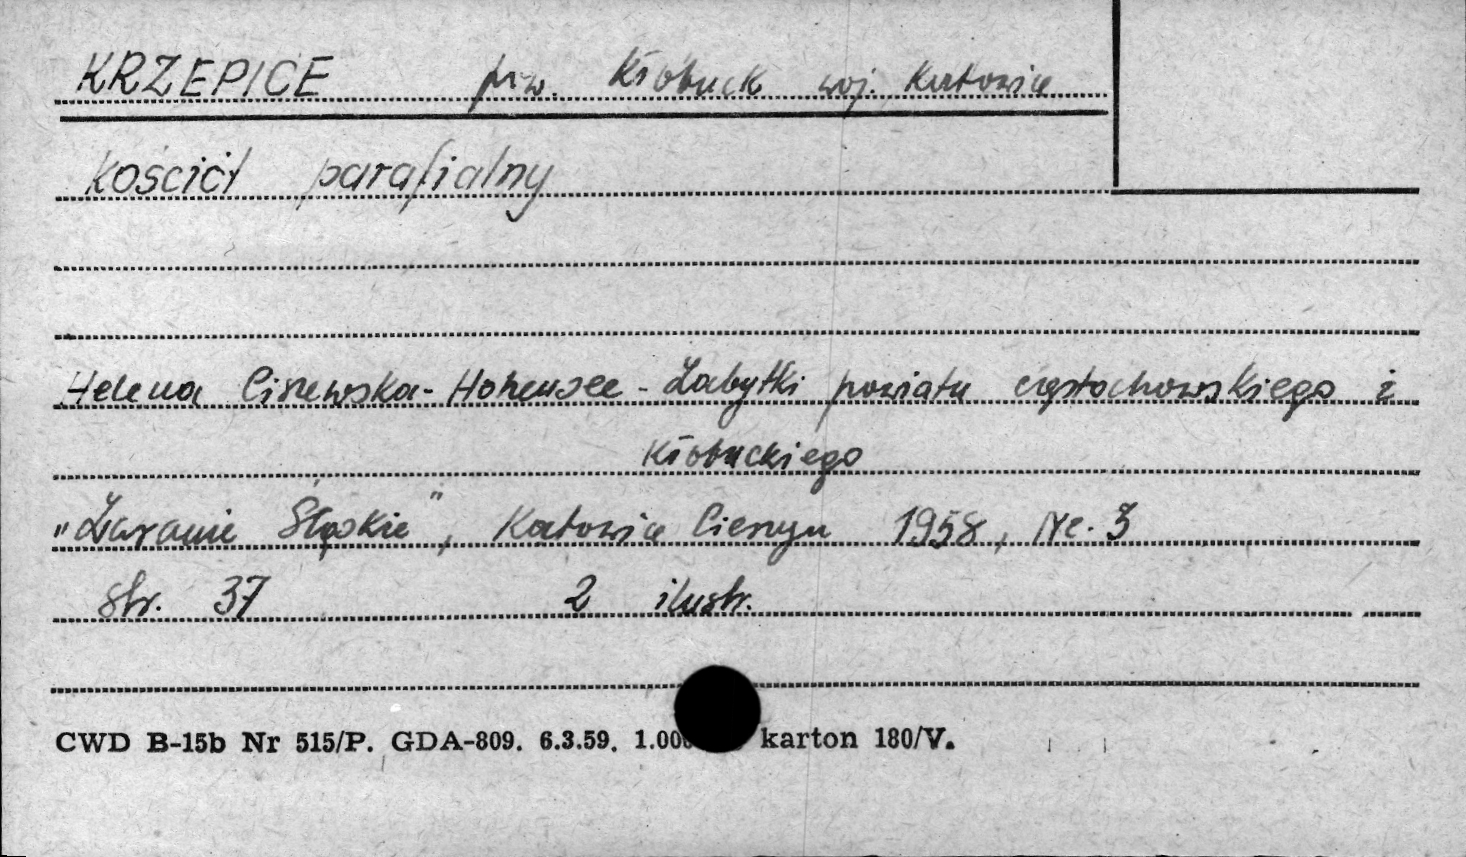 KRZEPICE pow. Kłobuck woj. Katowice
kościół parafialny
Helena Ciszewska-Hohensee - Zabytki powiatu częstochowskiego i
Kłobuckiego
"Zaranie Śląskie", Katowice Cieszyn 1958, Nr. 3
str. 37 2 ilustr.
CWD B-15b Nr 515/P. GDA-809. 6.3.59. 1.000 karton 180/V.